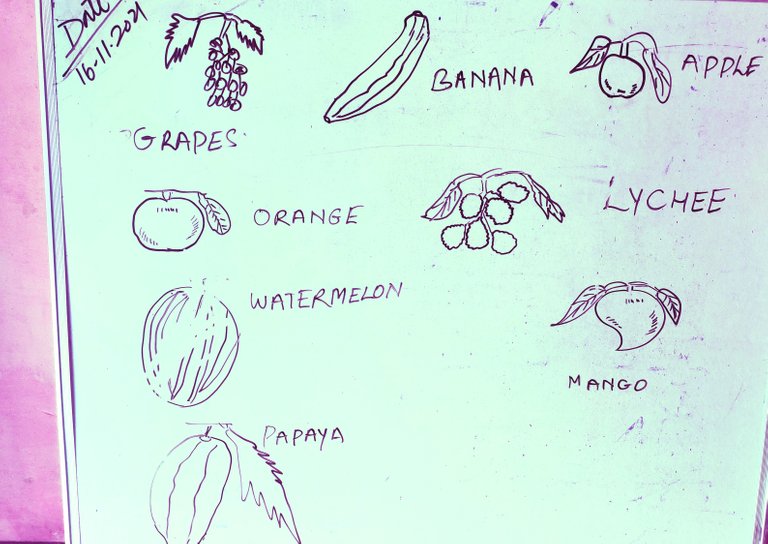 Date
16-11-2021
BANANA
APPLE
GRAPES
ORANGE
LYCHEE
WATERMELON
MANGO
PAPAYA